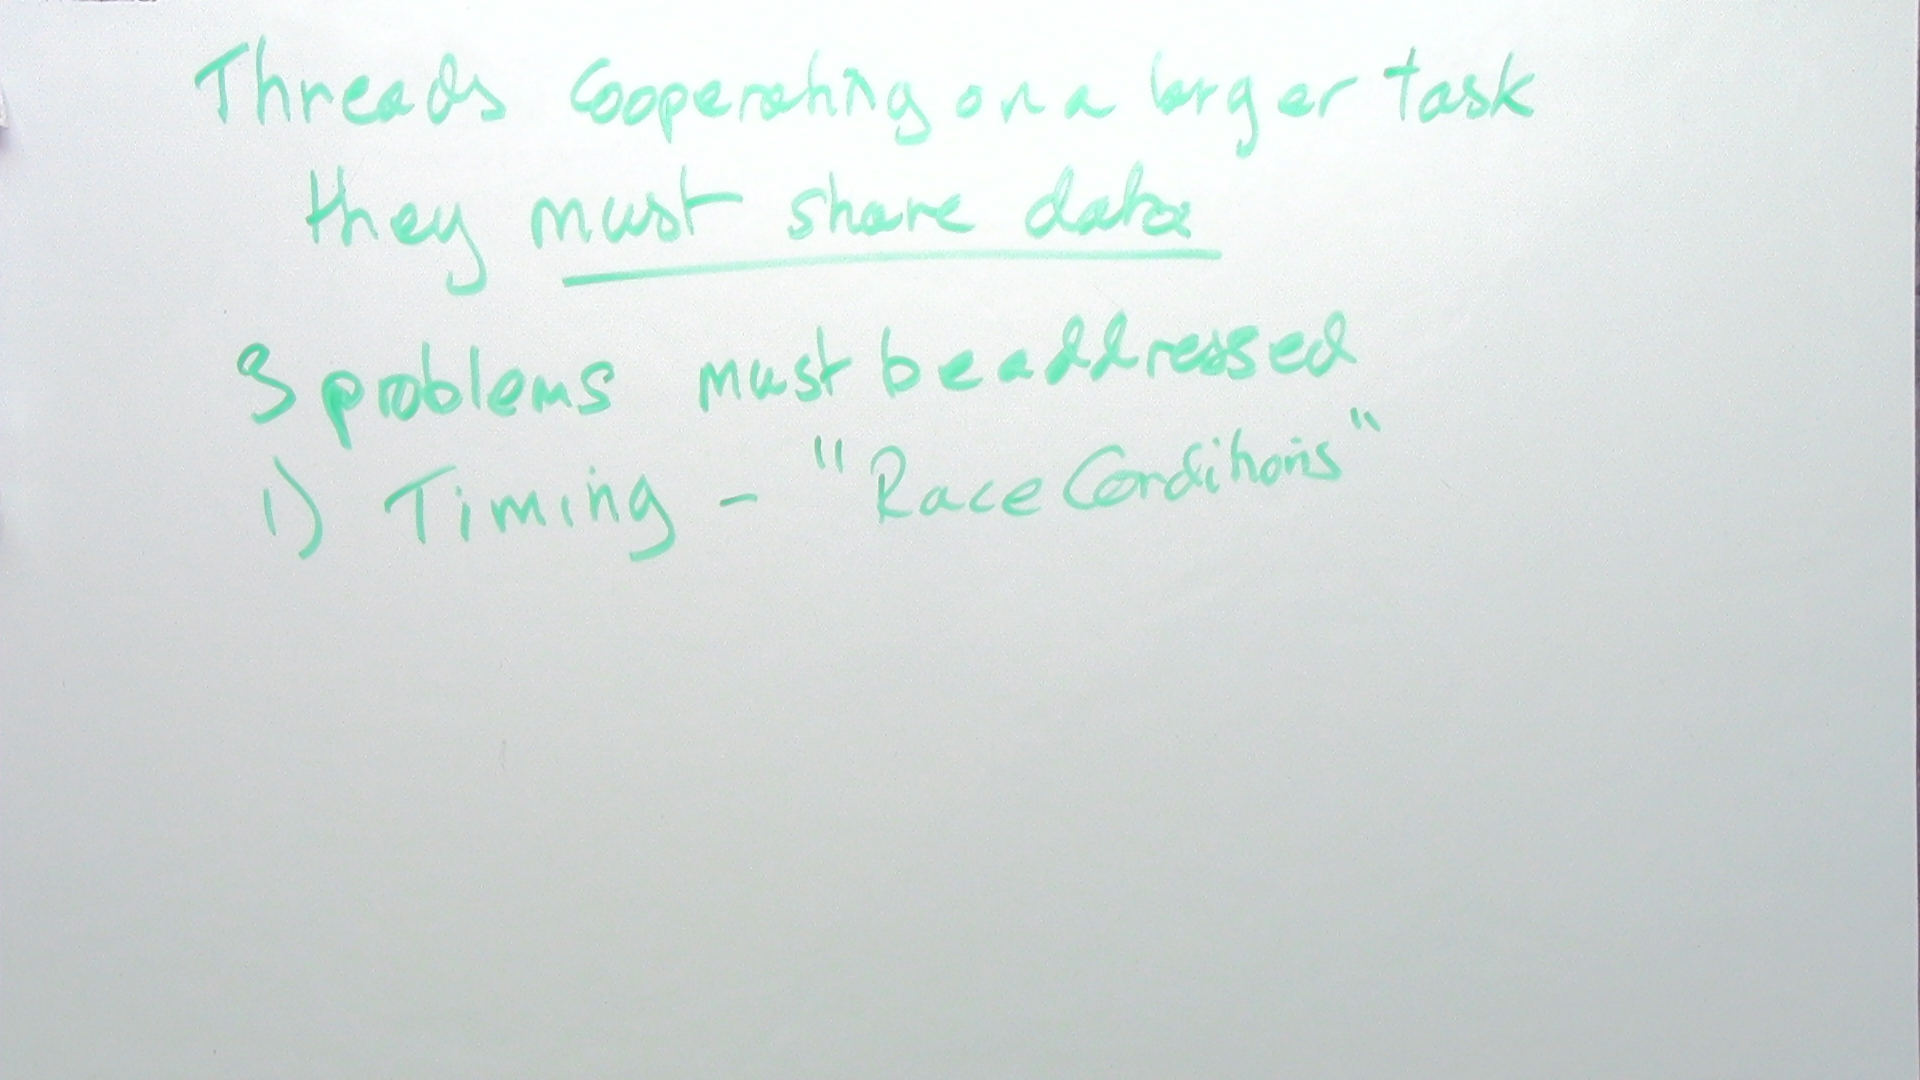 Threads Cooperating on a larger task
they must share data
3 problems must be addressed
1) Timing - "Race Conditions"